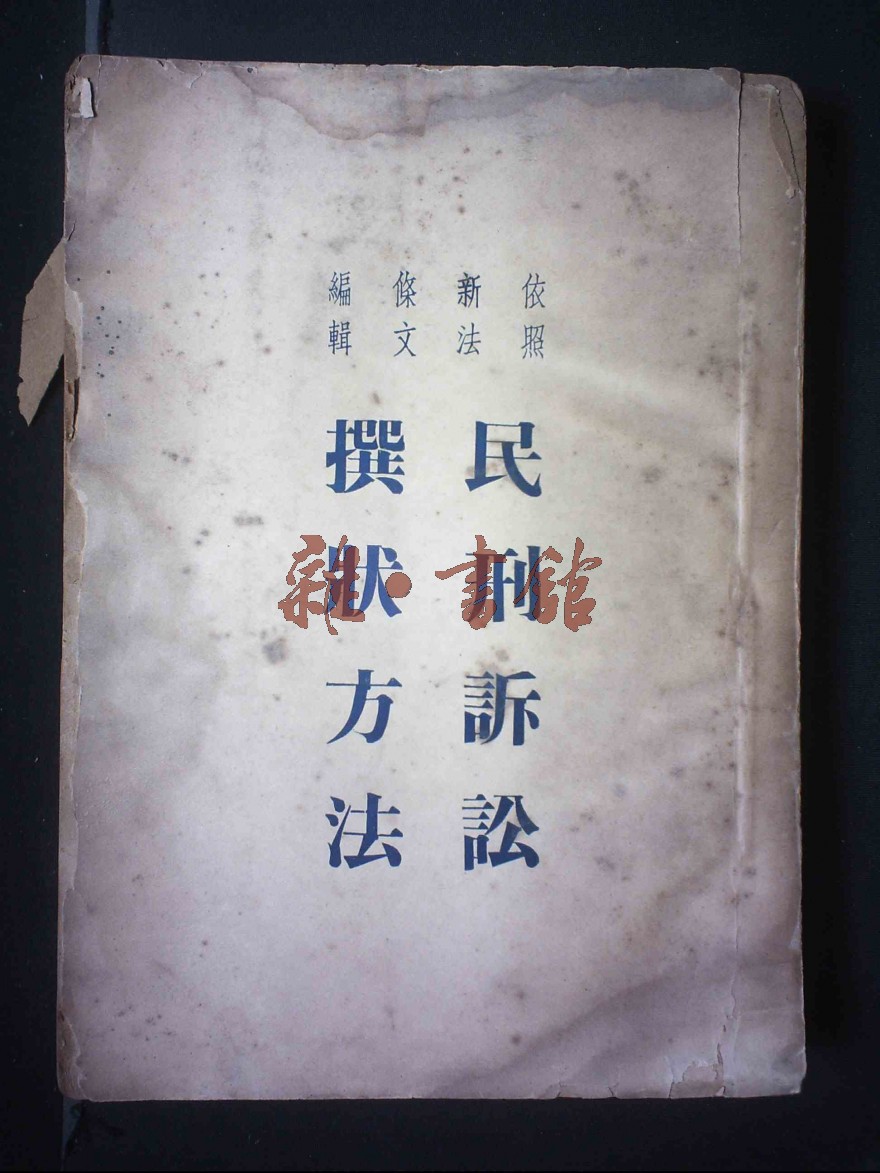 依照
新法
條文
編輯
民刑訴訟
撰狀方法
雜·書館